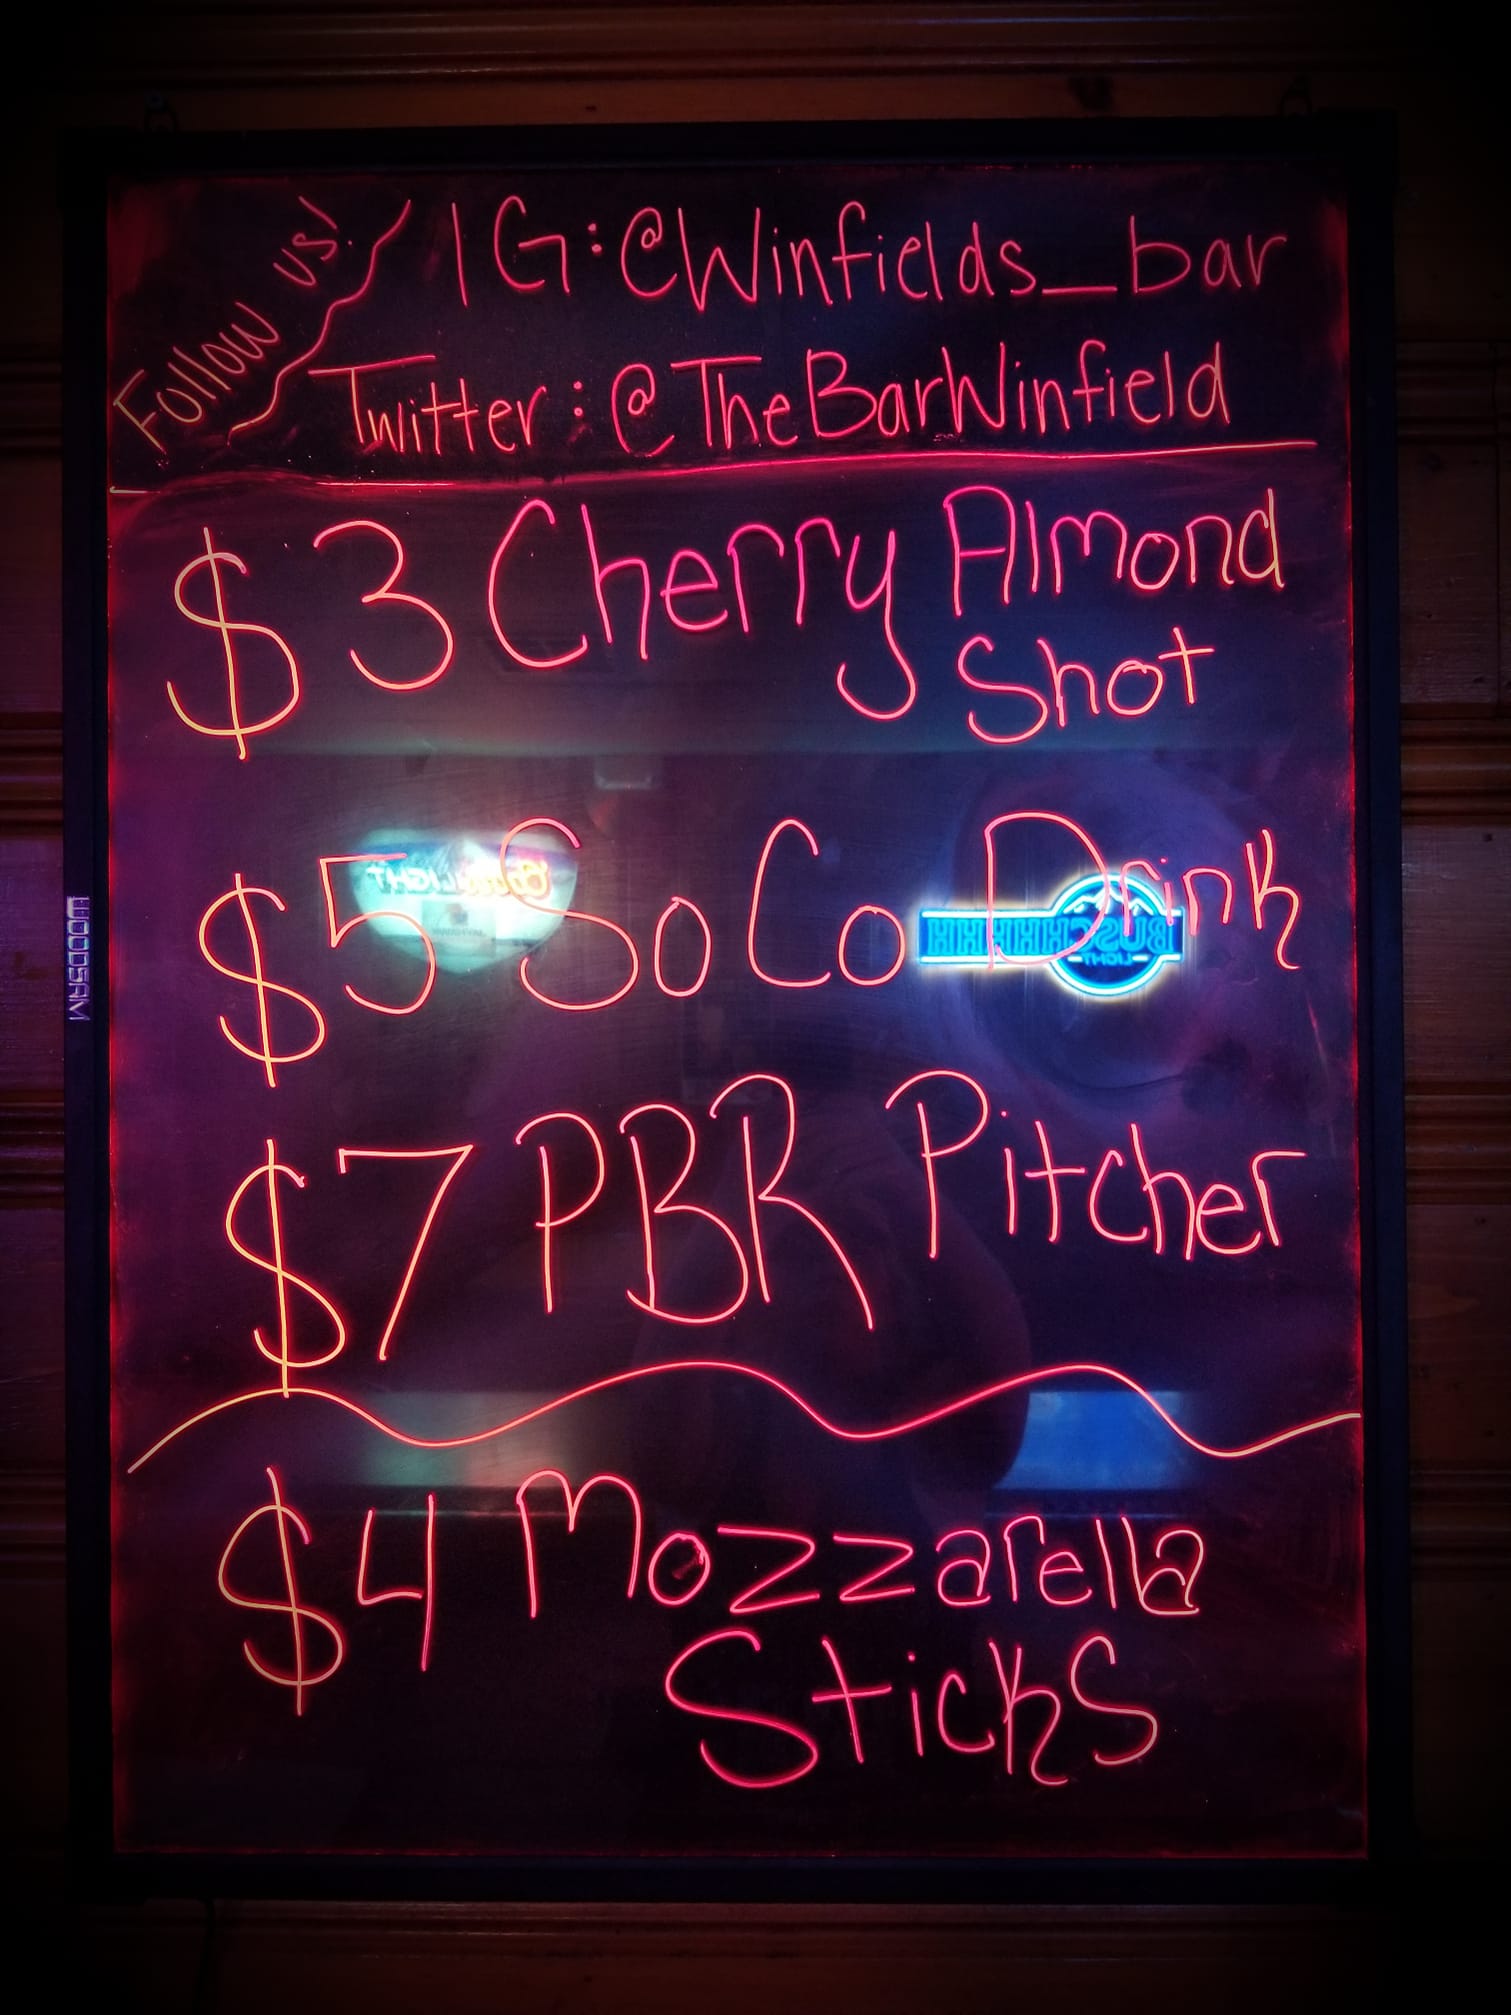 Follow us!
IG: @Winfields_bar
Twitter: @TheBarWinfield
$3 Cherry Almond
Shot
$5 SoCo Drink
$7 PBR Pitcher
$4 Mozzarella
Sticks
WOODSAM
LIGHT
BUSCHHHHH
LIGHT